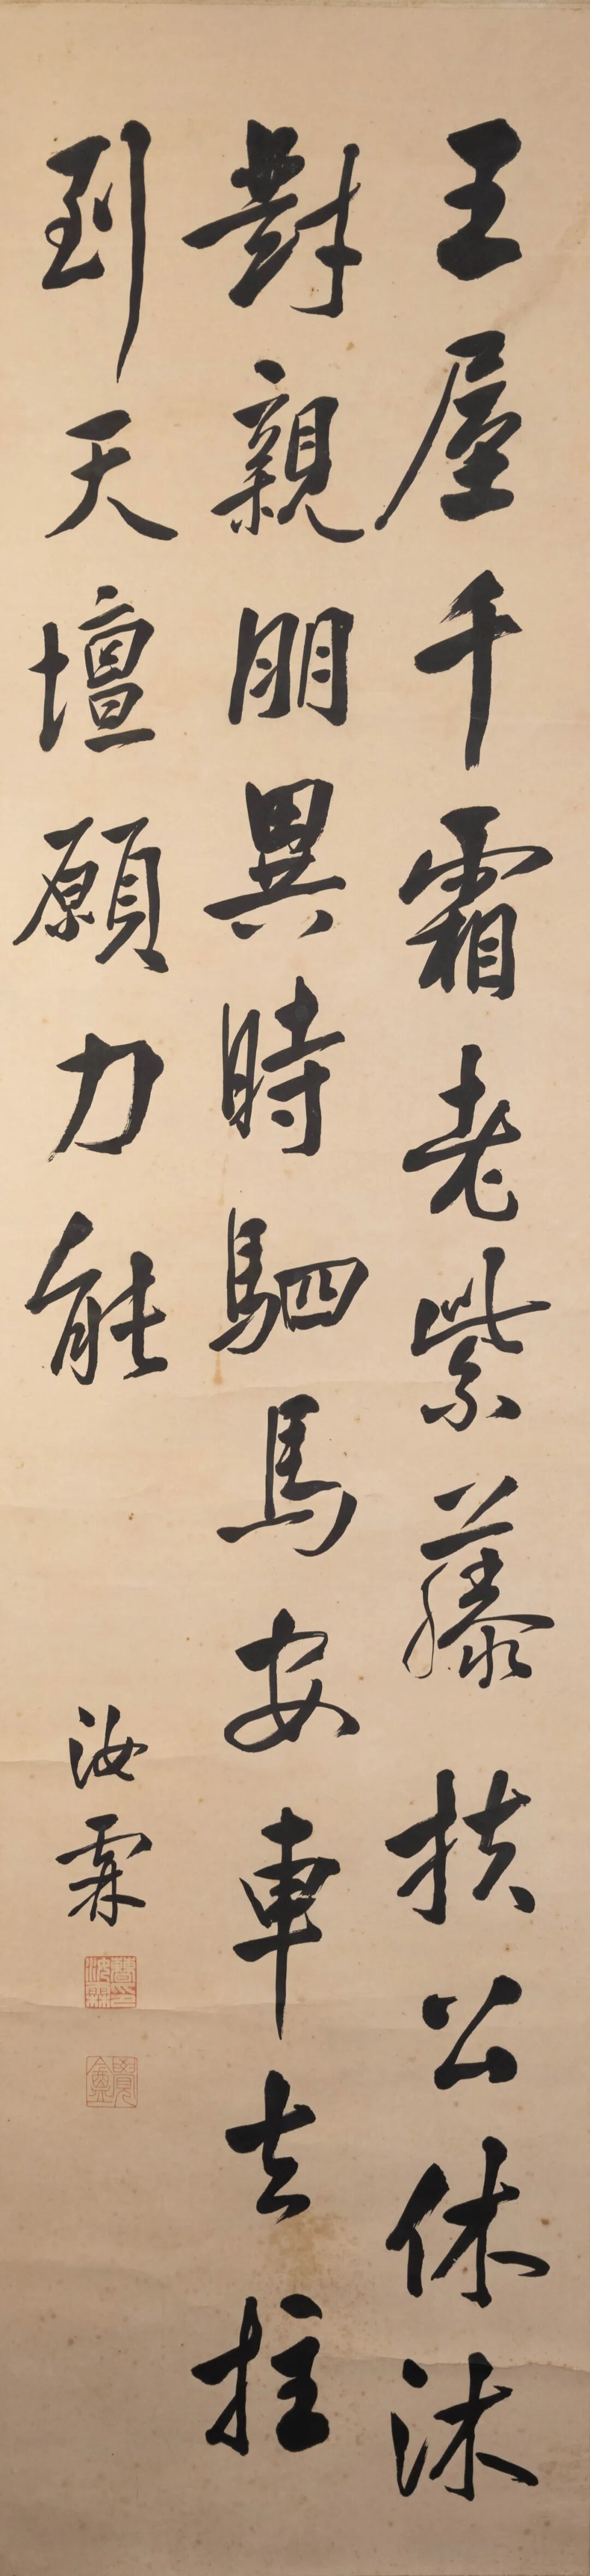 王屋千霜老紫藤扶公休沐
對親朋異時駟馬安車去拄
到天壇願力能
汝霖
曹汝霖印
覺盦